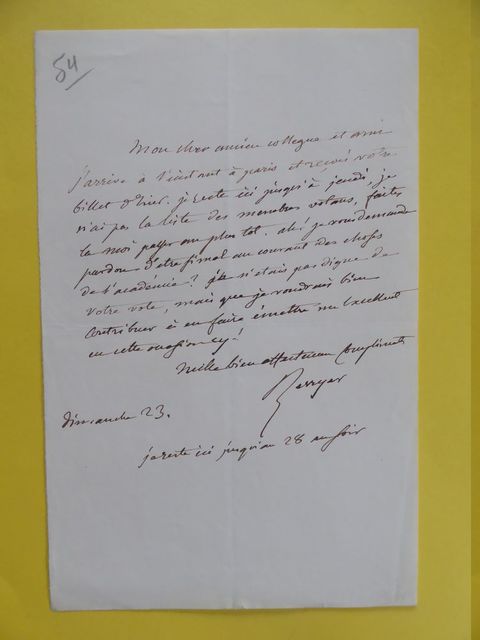 54
Mon cher ancien collegue et ami
J'arrive à l'instant à paris et reçois votre
billet d'hier. je reste ici jusqu'à jeudi, je
n'ai pas la liste des membres votans, faites
la moi passer au plus tot. ah! je vous demande
pardon d'etre si mal au courant des choses
de l'académie? je n'etais pas digne de
votre vote, mais que je voudrais bien
contribuer à en faire émettre un excellent
en cette occasion cy!
Mille bien affectueux Compliments
Berryer
dimanche 23.
je reste ici jusqu'au 28 au soir